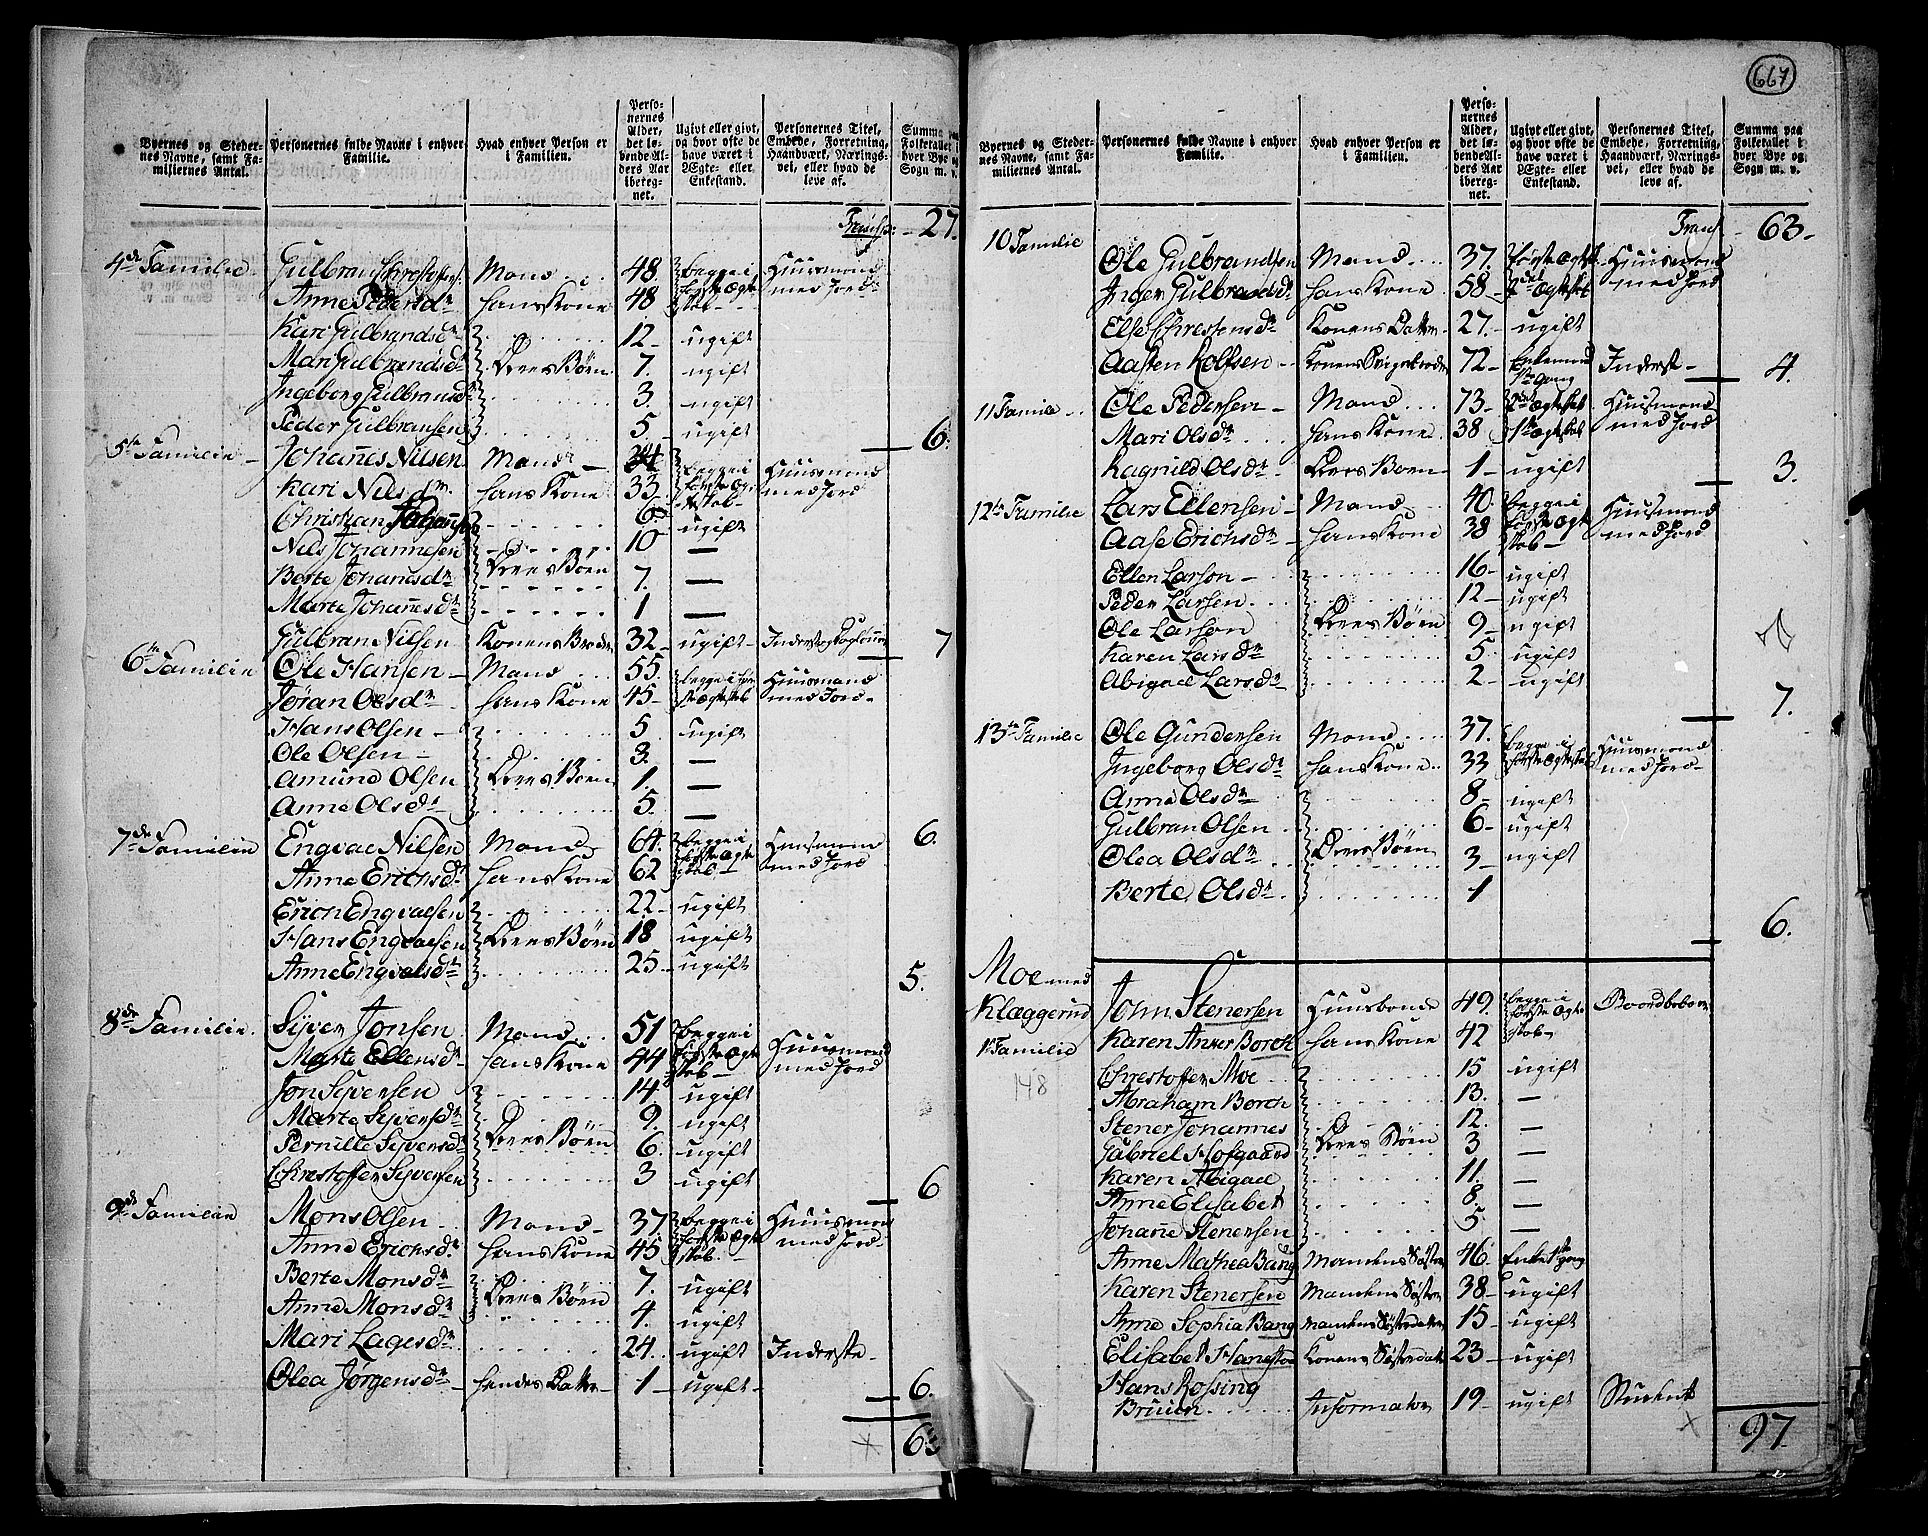 667
Byernes og Stedernes Navne, samt Familiernes Antal. | Personernes fulde Navne i enhver Familie. | Hvad enhver Person er i Familien. | Personernes Alder, det løbende Alders Aar iberegnet. | Ugivt eller givt, og hvor ofte de have været i Ægte- eller Enkestand. | Personernes Titel, Embede, Forretning, Haandværk, Næringsvei, eller hvad de leve af. | Summa paa Folketallet i hver Bye og Sogn m. v.
Transp: 27.
4de Familie Gulbran Chrestophers. Mand 48 begge i første Ægteskab Huusmand med Jord
Anne Pedersdr Hans Kone 48
Kari Gulbrandsdr 12 ugift
Mari Gulbrandsdr Deres Børn 7. ugift
Ingeborg Gulbransdr 3 ugift
Peder Gulbransen 5 ugift 6.
5te Familie Johañes Nilsen Mand 34 begge i første Ægteskab Huusmand med Jord
Kari Nilsdr Hans Kone 33
Christian Johañsen 6 ugift
Nils Johannesen 10 —
Berte Johañesdr Deres Børn 7. —
Marte Johañesdr 1 —
Gulbran Nilsen Konens Broder 32 ugift Inderst og Dagleiier 7
6te Familie Ole Hansen Mand 55. begge i første Ægteskab Huusmand med Jord
Jøran Olsdr Hans Kone 45
Hans Olsen 5 ugift
Ole Olsen 3. —
Amund Olsen Deres Børn 1. —
Anne Olsdr 5. — 6.
7de Familie Engval Nilsen Mand 64. begge i første Ægteskab Huusmand med Jord
Anne Erichsdr Hans Kone 62
Erich Engvalsen 22 ugift
Hans Engvalsen Deres Børn 18 ugift
Anne Engvalsdr 25 ugift 5.
8de Familie Syver Jonsen Mand 51 begge i første Ægteskab Huusmand med Jord
Marte Ellensdr Hans Kone 44
Jon Syversen 14 ugift
Marte Syversdr 9. ugift
Pernille Syversdr Deres Børn 6. ugift
Chrestoffer Syversen 3 ugift 6
9de Familie Mons Olsen Mand 37 begge i første Ægteskab Huusmand med Jord
Anne Erichsdr Hans Kone 45
Berte Monsdr 7. ugift
Anne Monsdr Deres Børn 4. ugift
Mari Lagesdr 24 ugift Inderste
Olea Jørgensdr Hendes Datter 1 ugift 6.
63
Byernes og Stedernes Navne, samt Familiernes Antal. | Personernes fulde Navne i enhver Familie. | Hvad enhver Person er i Familien. | Personernes Alder, det løbende Alders Aar iberegnet. | Ugivt eller givt, og hvor ofte de have været i Ægte- eller Enkestand. | Personernes Titel, Embede, Forretning, Haandværk, Næringsvei, eller hvad de leve af. | Summa paa Folketallet i hver Bye og Sogn m. v.
Transp 63
10 Familie Ole Gulbrandsen Mand 37. første Ægtesk. Huusmand med Jord
Inger Gulbrandsdr Hans Kone 58 2det Ægtesk
Else Chrestensdr Konens Datter 27. ugift
Aasten Rolfsen Konens Svigerbroder 72 Enkemand 1ste Gang Inderst 4.
11 Familie Ole Pedersen Mand 73 2det Ægtesk Huusmand med Jord
Mari Olsdr Hans Kone 38 1te Ægtesk
Ragnild Olsdr Deres Barn 1 ugift 3.
12te Familie Lars Ellensen Mand 40. begge i første Ægteskab Huusmand med Jord
Aase Erichsdr Hans Kone 38
Ellen Larsen 16 ugift
Peder Larsen 12 ugift
Ole Larsen Deres Børn 9 ugift
Karen Larsdr 5 ugift
Abigael Larsdr 2 ugift 7.
13te Familie Ole Gundersen Mand 37. begge i første Ægtesk Huusmand med Jord
Ingeborg Olsdr Hans Kone 33
Anne Olsdr 8 ugift
Gulbran Olsen 6 ugift
Olea Olsdr Deres Børn 3 ugift
Berte Olsdr 1 6.
Moe med Klæggerud
1 Familie
148
John Stenersen Huusbonde 49. begge i første Ægteskab Boordbeboer
Karen Anker Borch Hans Kone 42
Chrestoffer Moe 15 ugift
Abraham Borch 13. —
Stener Johannes 12. —
Gabriel Hofgaard Deres Børn 3 —
Karen Abigael 11. —
Anne Elisabet 8. —
Johañe Stenersen 5 —
Anne Mathea Bang Mandens Søster 46. Enke 1ste gang
Karen Stenersen Mandens Søster 38 ugift
Anne Sophia Bang Mandens Søsterdatter 15 ugift
Elisabet Konens Søsterdatter 23 ugift
Hans Rossing Bruuen Informator 19 ugift Student
97